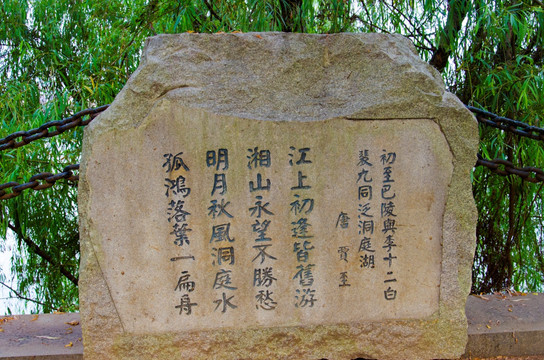 初至巴陵與李十二白
裴九同泛洞庭湖
唐 賈至
江上初逢皆舊游
湘山永望不勝愁
明月秋風洞庭水
孤鴻落葉一扁舟